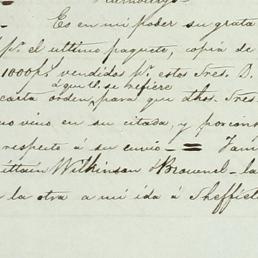 Es en mi poder su grata
pr. el ultimo paquete, copia de
1000ps. vendidos pr. estos Sres. B.
à que U. se refiere
carta orden, para que dhos. Sres.
no vino en su citada, y por cons
respecto á su envio — = Tam
ittain Wilkinson & Brownel - la
la otra a mi ida á Sheffiel